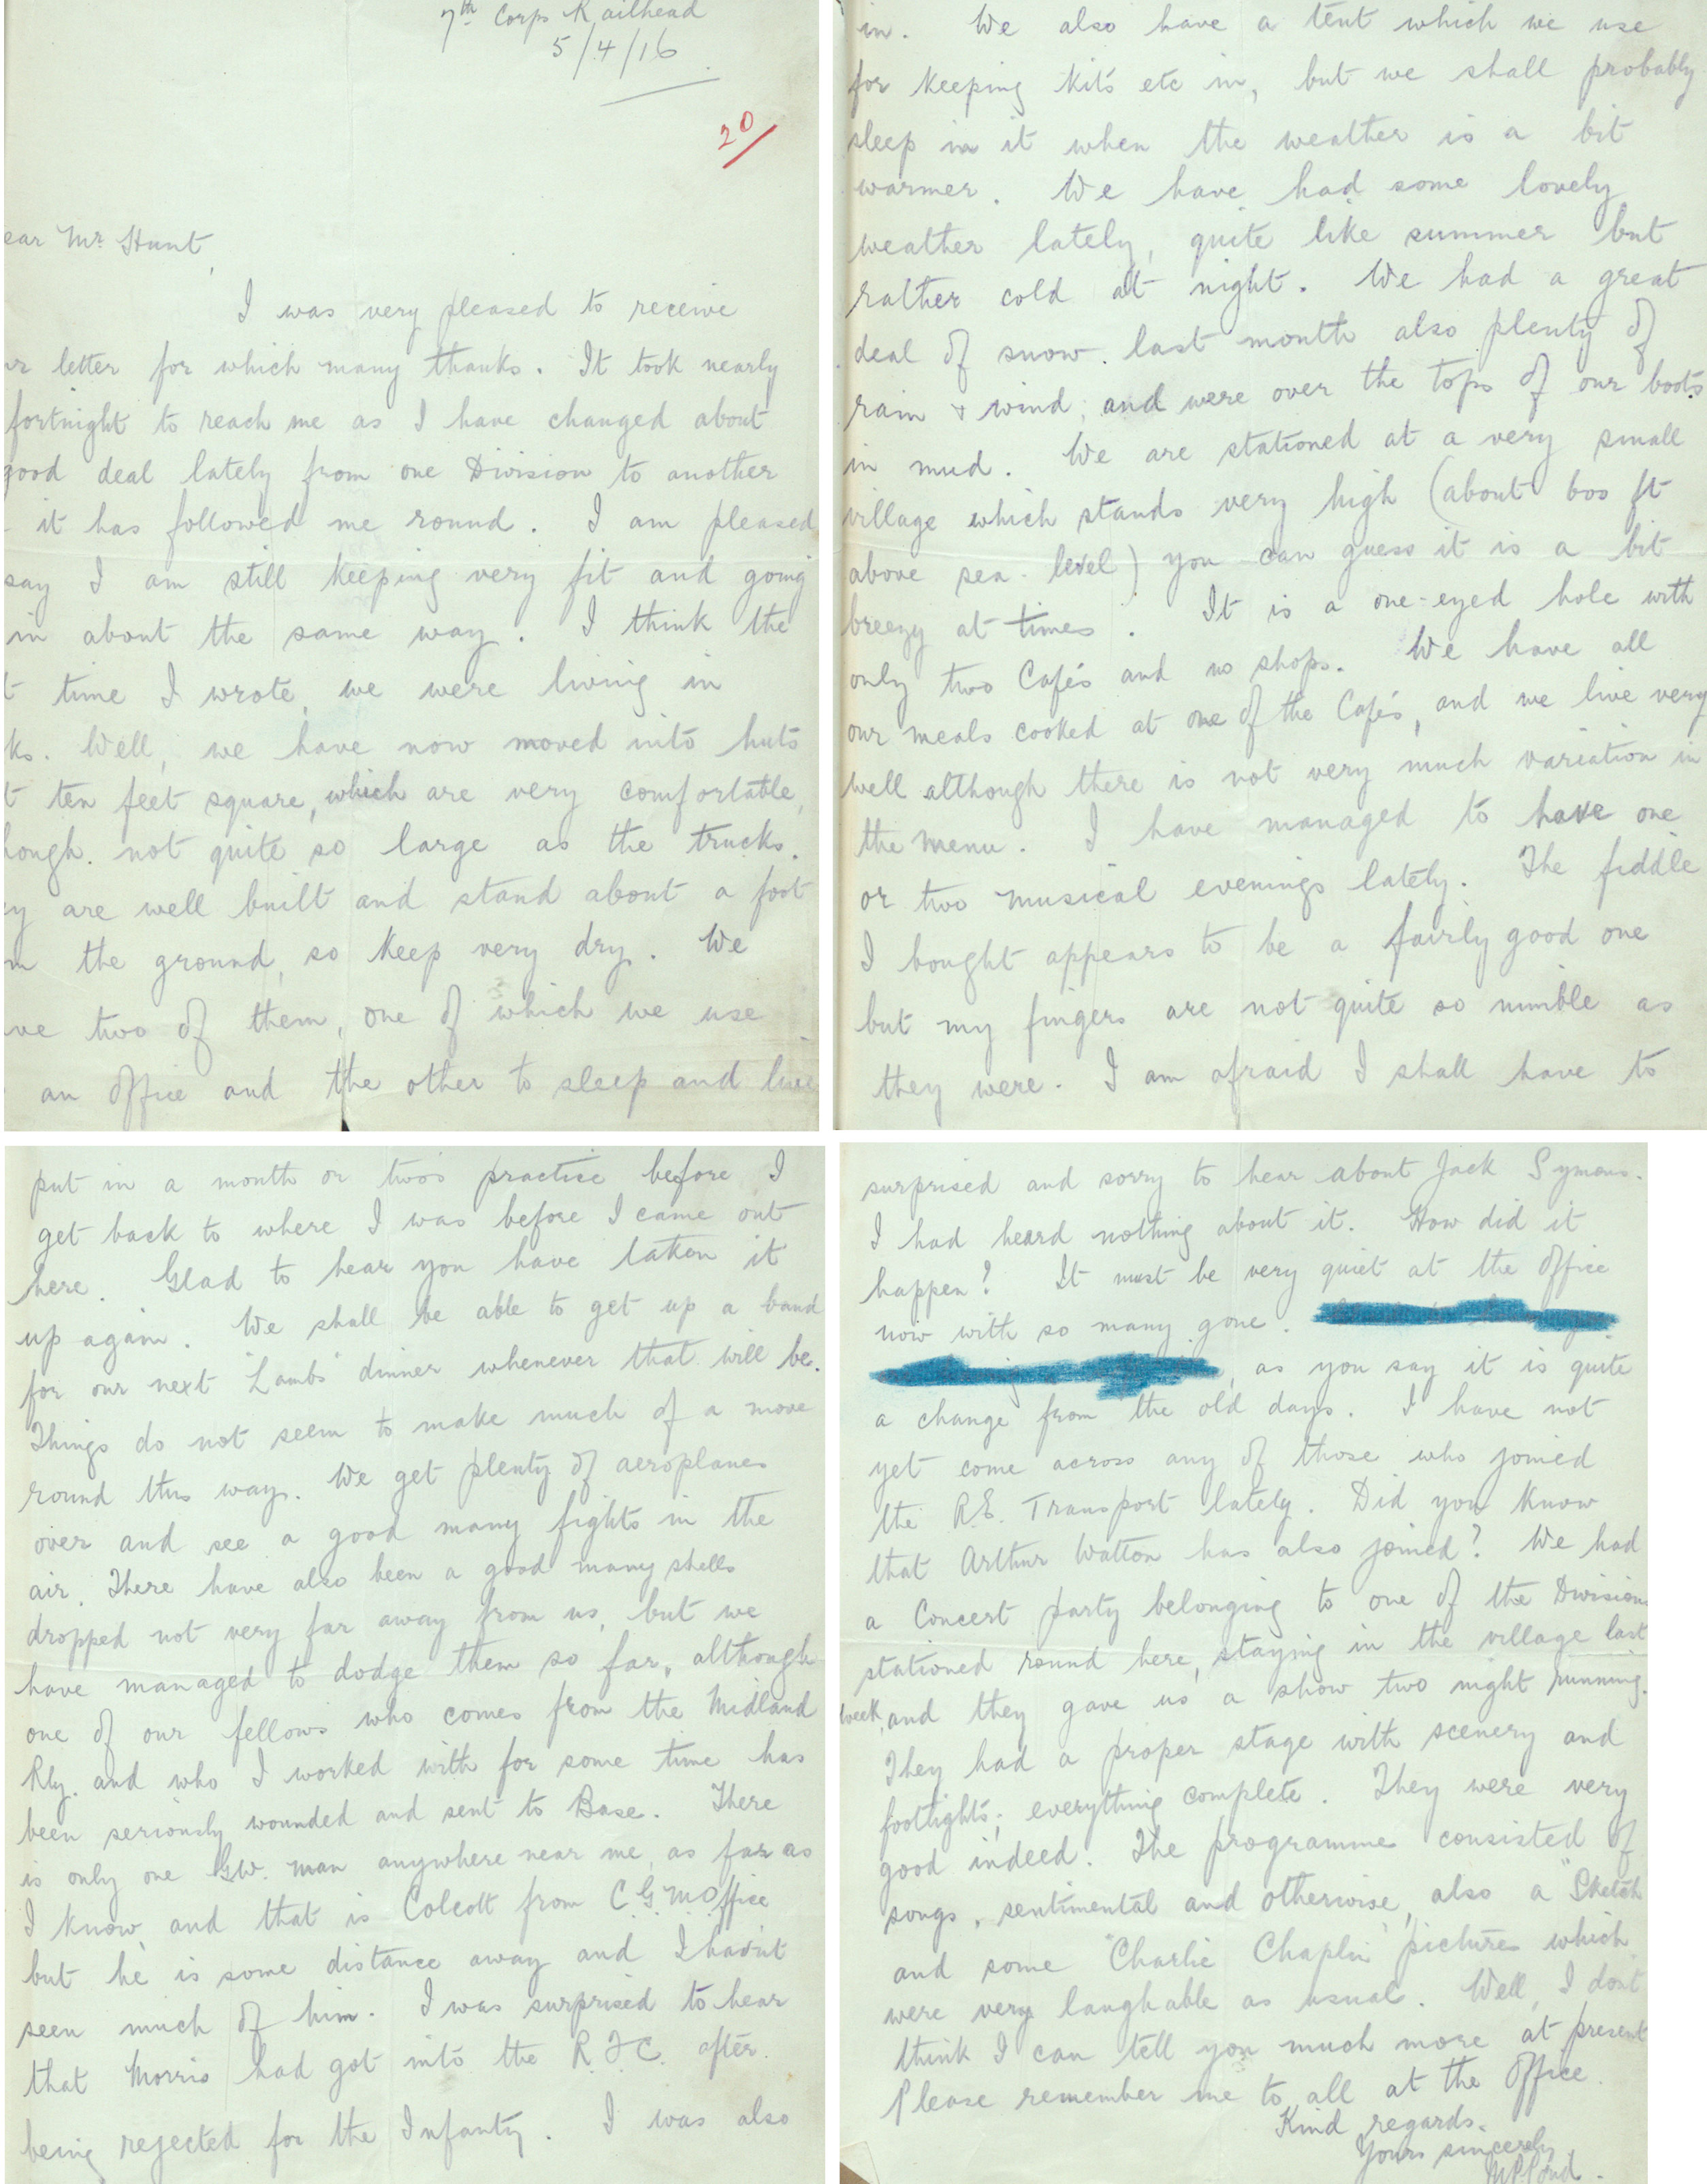 7th Corps Railhead
5/4/16
20/
ear Mr. Hunt,
I was very pleased to receive
ur letter for which many thanks. It took nearly
fortnight to reach me as I have changed about
good deal lately from one Division to another
it has followed me round. I am pleased
say I am still keeping very fit and going
in about the same way. I think the
t time I wrote, we were living in
ks. Well, we have now moved into huts
t ten feet square, which are very comfortable,
hough. not quite so large as the trucks.
ey are well built and stand about a foot
m the ground, so keep very dry. We
ve two of them, one of which we use
an office and the other to sleep and live
in. We also have a tent which we use
for keeping kits etc in, but we shall probably
sleep in it when the weather is a bit
warmer. We have had some lovely
weather lately, quite like summer but
rather cold at night. We had a great
deal of snow. last month also plenty of
rain & wind; and were over the tops of our boots
in mud. We are stationed at a very small
village which stands very high (about 600 ft
above sea-level) you can guess it is a bit
breezy at times. It is a one-eyed hole with
only two Cafés and no shops. We have all
our meals cooked at one of the Cafés, and we live very
well although there is not very much variation in
the menu. I have managed to have one
or two musical evenings lately. The fiddle
I bought appears to be a fairly good one
but my fingers are not quite so nimble as
they were. I am afraid I shall have to
put in a month or two's practise before I
get back to where I was before I came out
here. Glad to hear you have taken it
up again. We shall be able to get up a band
for our next "Lambs" dinner whenever that will be.
Things do not seem to make much of a move
round this way. We get plenty of aeroplanes
over and see a good many fights in the
air. There have also been a good many shells
dropped not very far away from us, but we
have managed to dodge them so far, although
one of our fellows who comes from the Midland
Rly. and who I worked with for some time has
been seriously wounded and sent to Base. There
is only one G.W. man anywhere near me, as far as
I know, and that is Colcott from C.G.M.Office
but he is some distance away and I hadn't
seen much of him. I was surprised to hear
that Morris had got into the R.F.C. after.
being rejected for the Infanty. I was also
surprised and sorry to hear about Jack Symons.
I had heard nothing about it. How did it
happen? It must be very quiet at the office
now with so many gone.
, as you say it is quite
a change from the old days. I have not
yet come across any of those who joined
the R.E. Transport lately. Did you know
that Arthur Watton has also joined? We had
a Concert party belonging to one of the Divisions
stationed round here, staying in the village last
week, and they gave us a show two night running.
They had a proper stage with scenery and
footlights; everything complete. They were very
good indeed. The programme consisted of
songs, sentimental and otherwise, also a "Sketch
and some "Charlie Chaplin" pictures which
were very laughable as usual. Well, I dont
think I can tell you much more at present
Please remember me to all at the Office.
Kind regards.
Yours sincerely,
Pond.